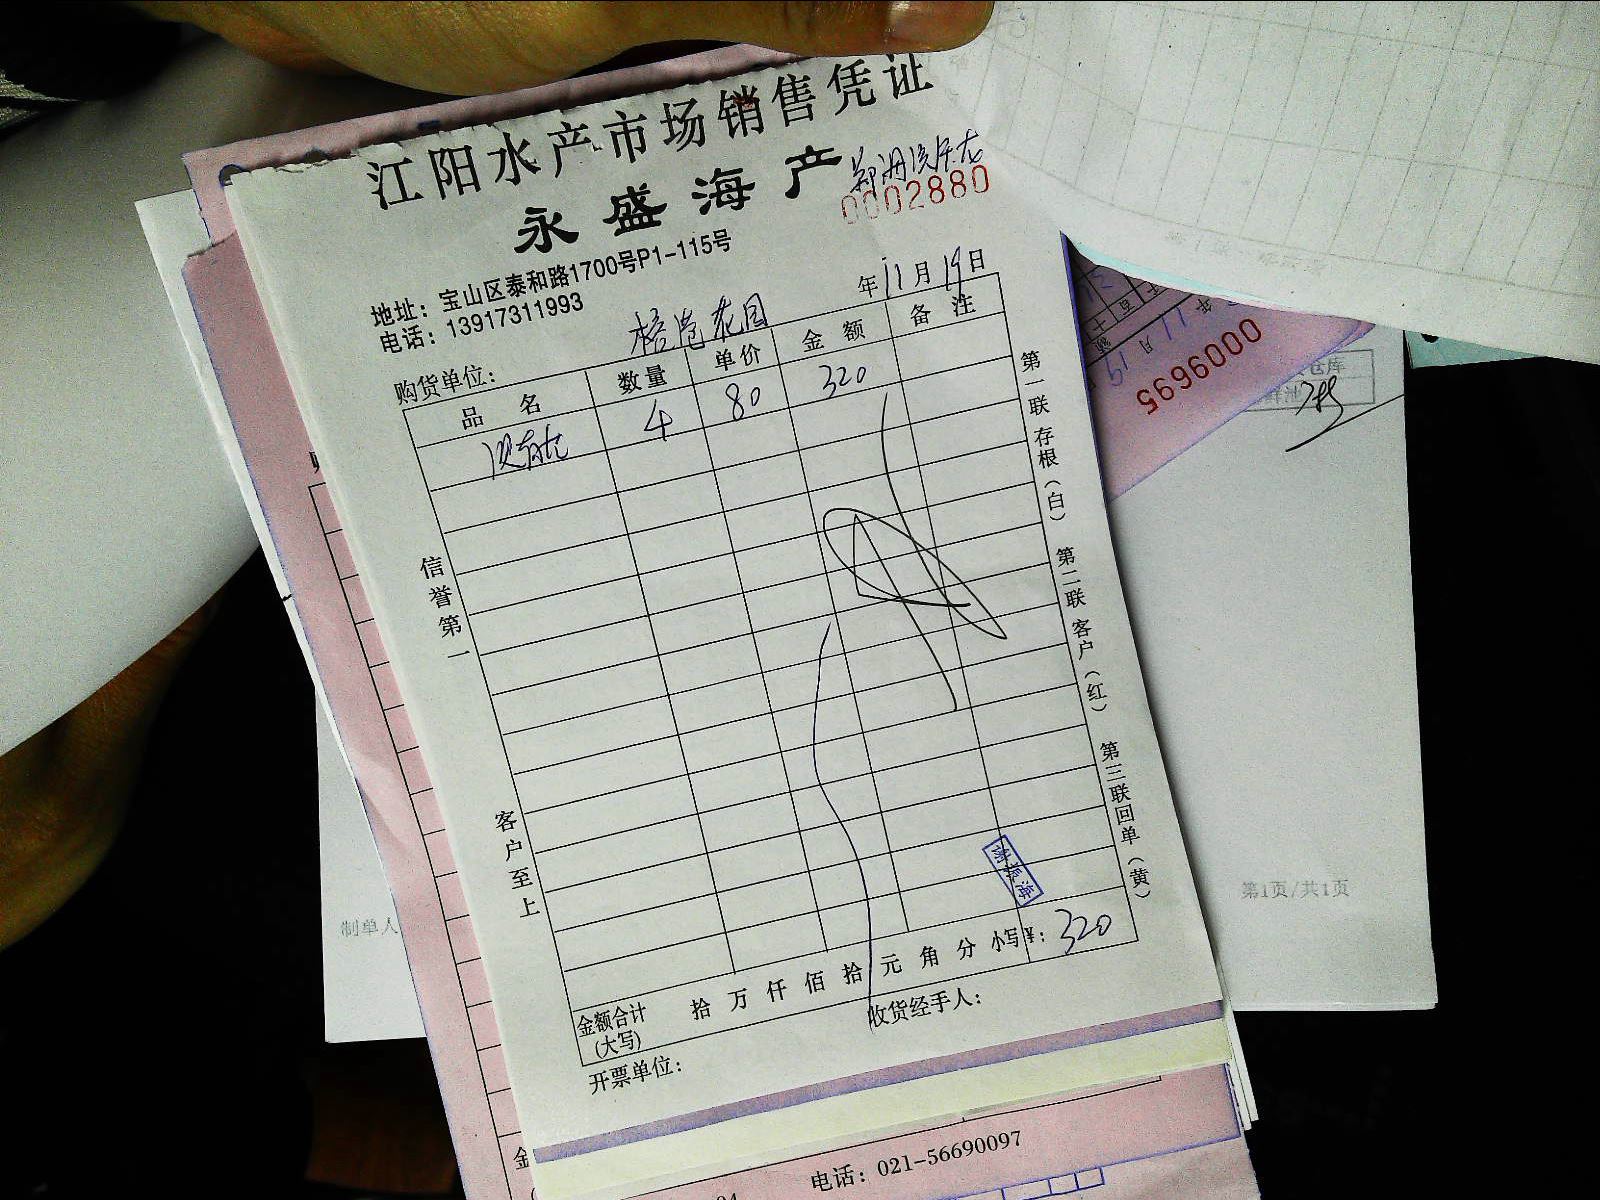 江阳水产市场销售凭证
永盛海产
0002880
地址：宝山区泰和路1700号P1-115号
电话：13917311993
年11月19日
购货单位：
品名 数量 单价 金额 备注
4 80 320
信誉第一
客户至上
第一联存根（白） 第二联客户（红） 第三联回单（黄）
金额合计(大写) 拾 万 仟 佰 拾 元 角 分 小写¥：320
开票单位： 收货经手人：
0009695
仓库
制单人
第1页/共1页
电话：021-56690097